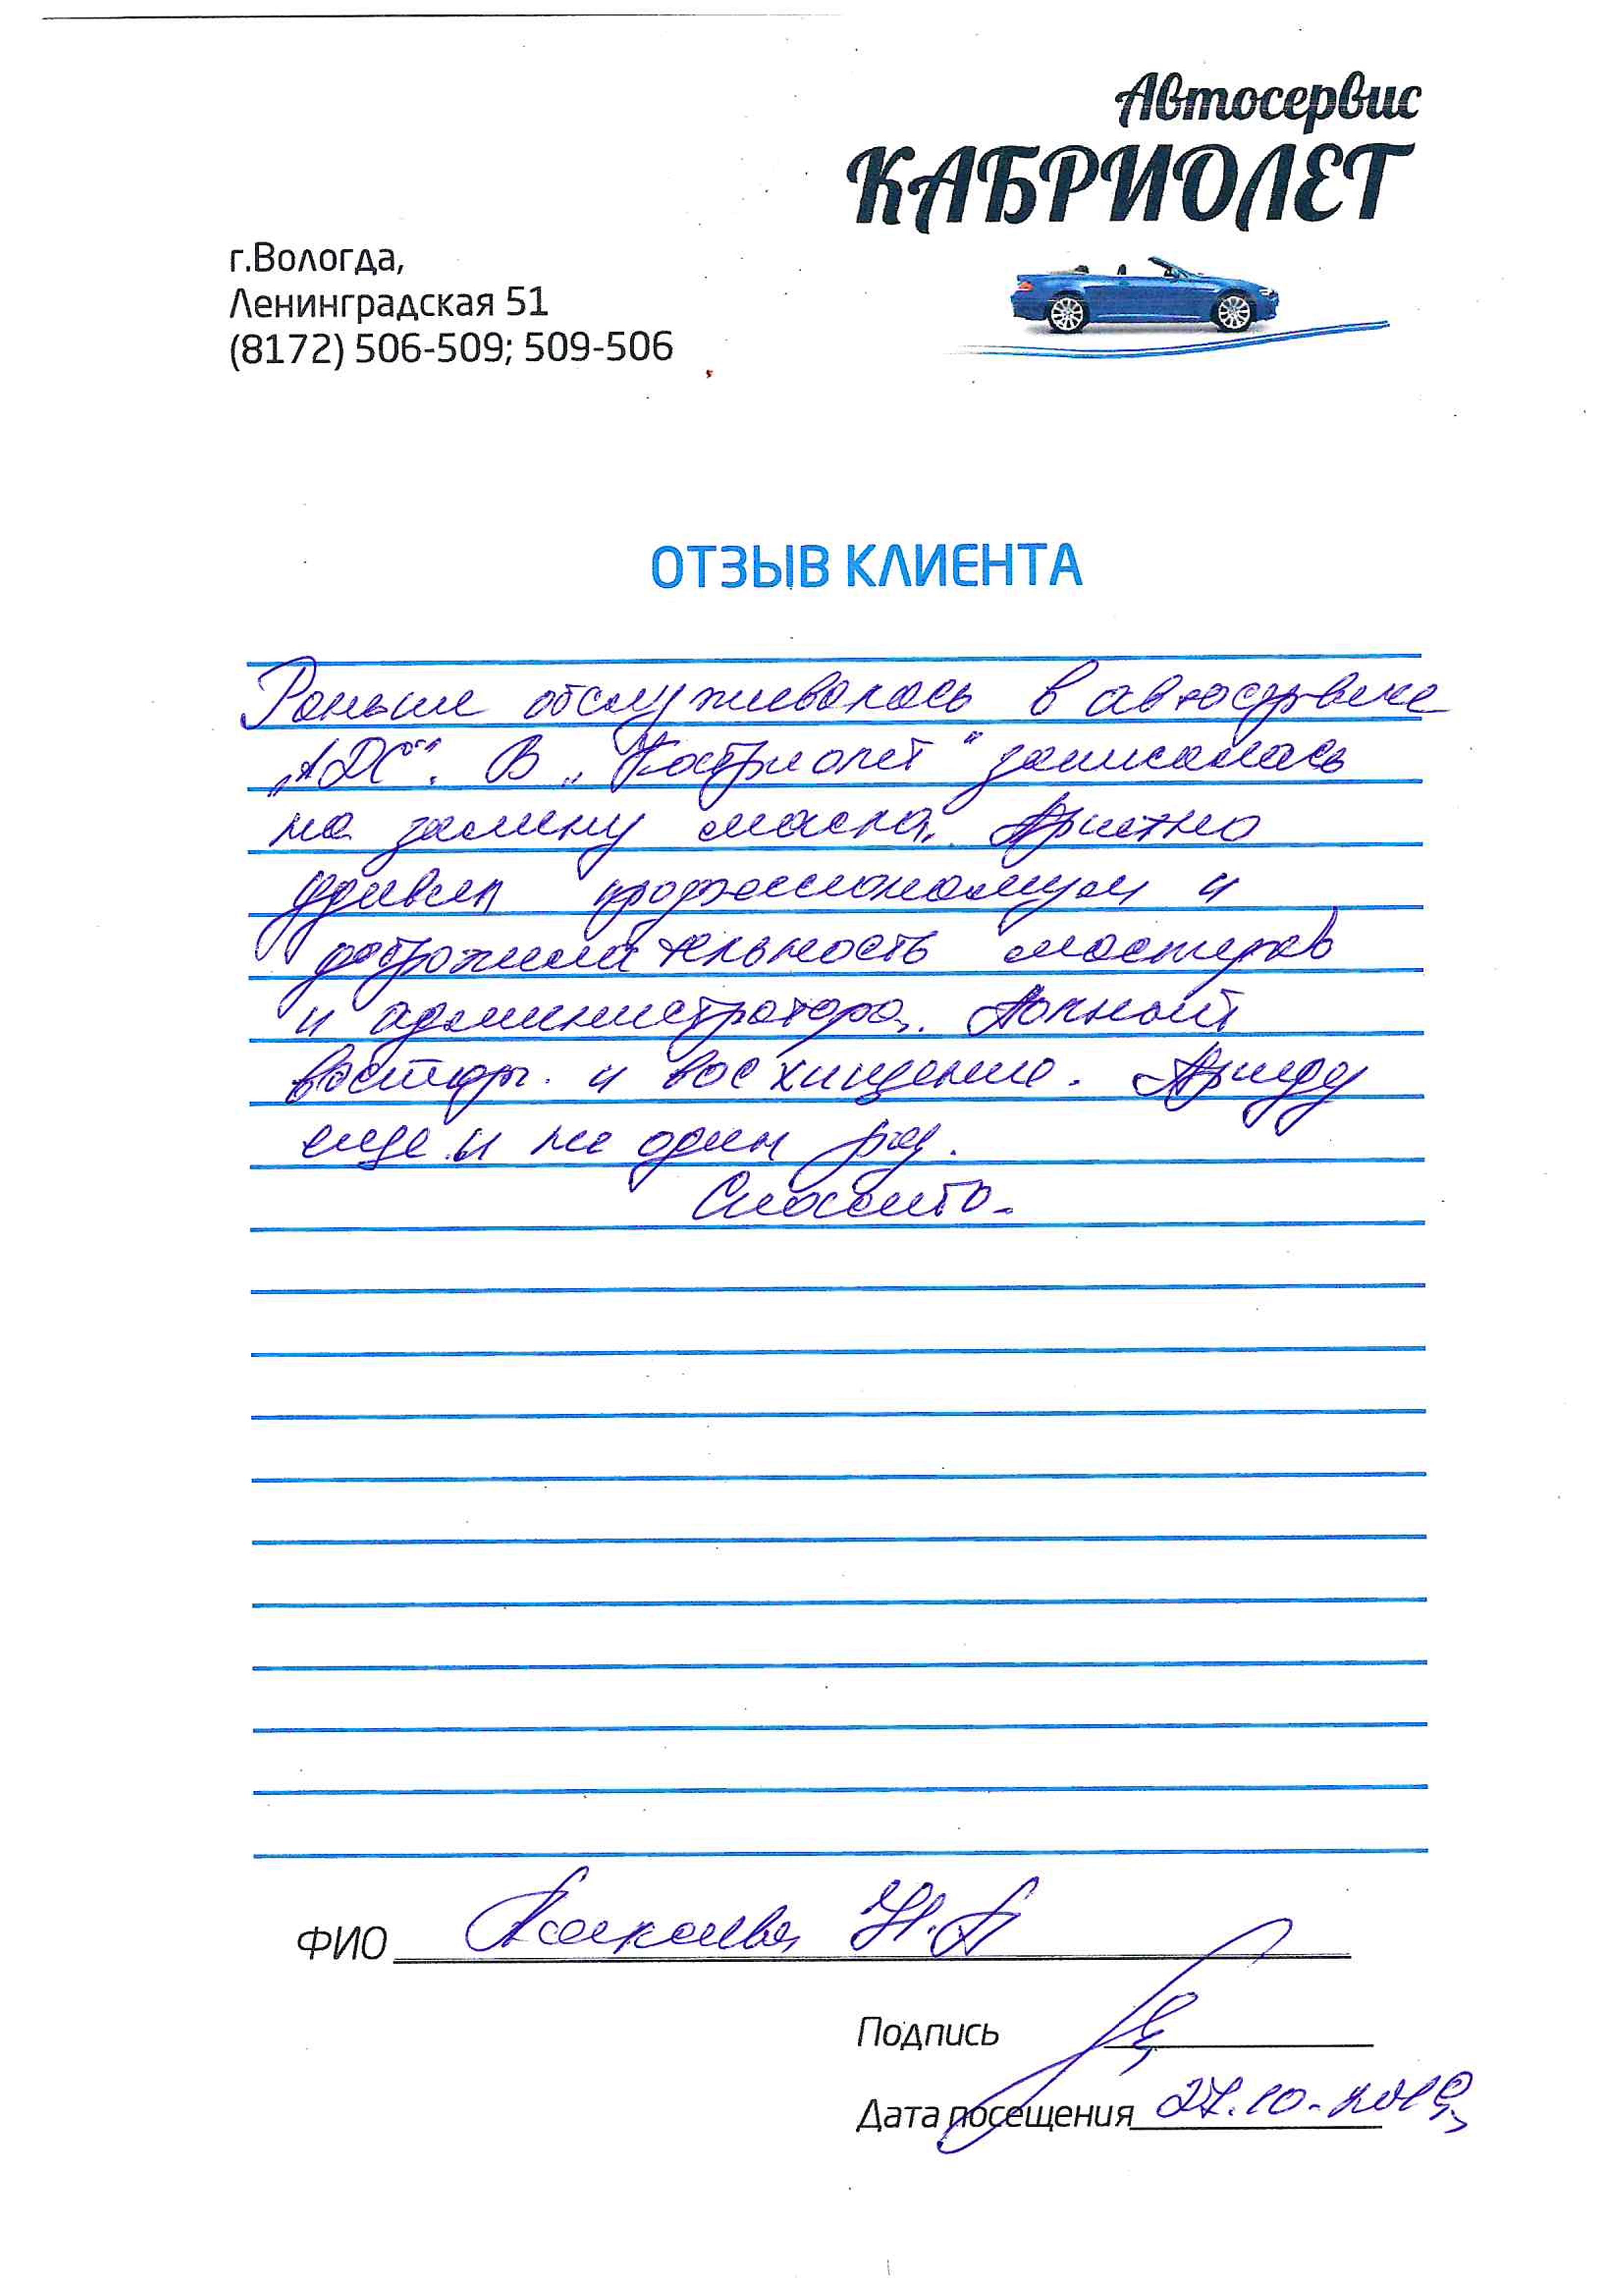 Автосервис
КАБРИОЛЕТ
г.Вологда,
Ленинградская 51
(8172) 506-509; 509-506
ОТЗЫВ КЛИЕНТА
Раньше обслуживалась в автосервисе
„АДС". В „Кабриолет" записалась
на замену масла. Приятно
удивил профессионализм и
доброжелательность мастеров
и администратора. Полный
восторг и восхищение. Приеду
еще и не один раз.
Спасибо.
ФИО Н.А
Подпись
Дата посещения 27.10.2019